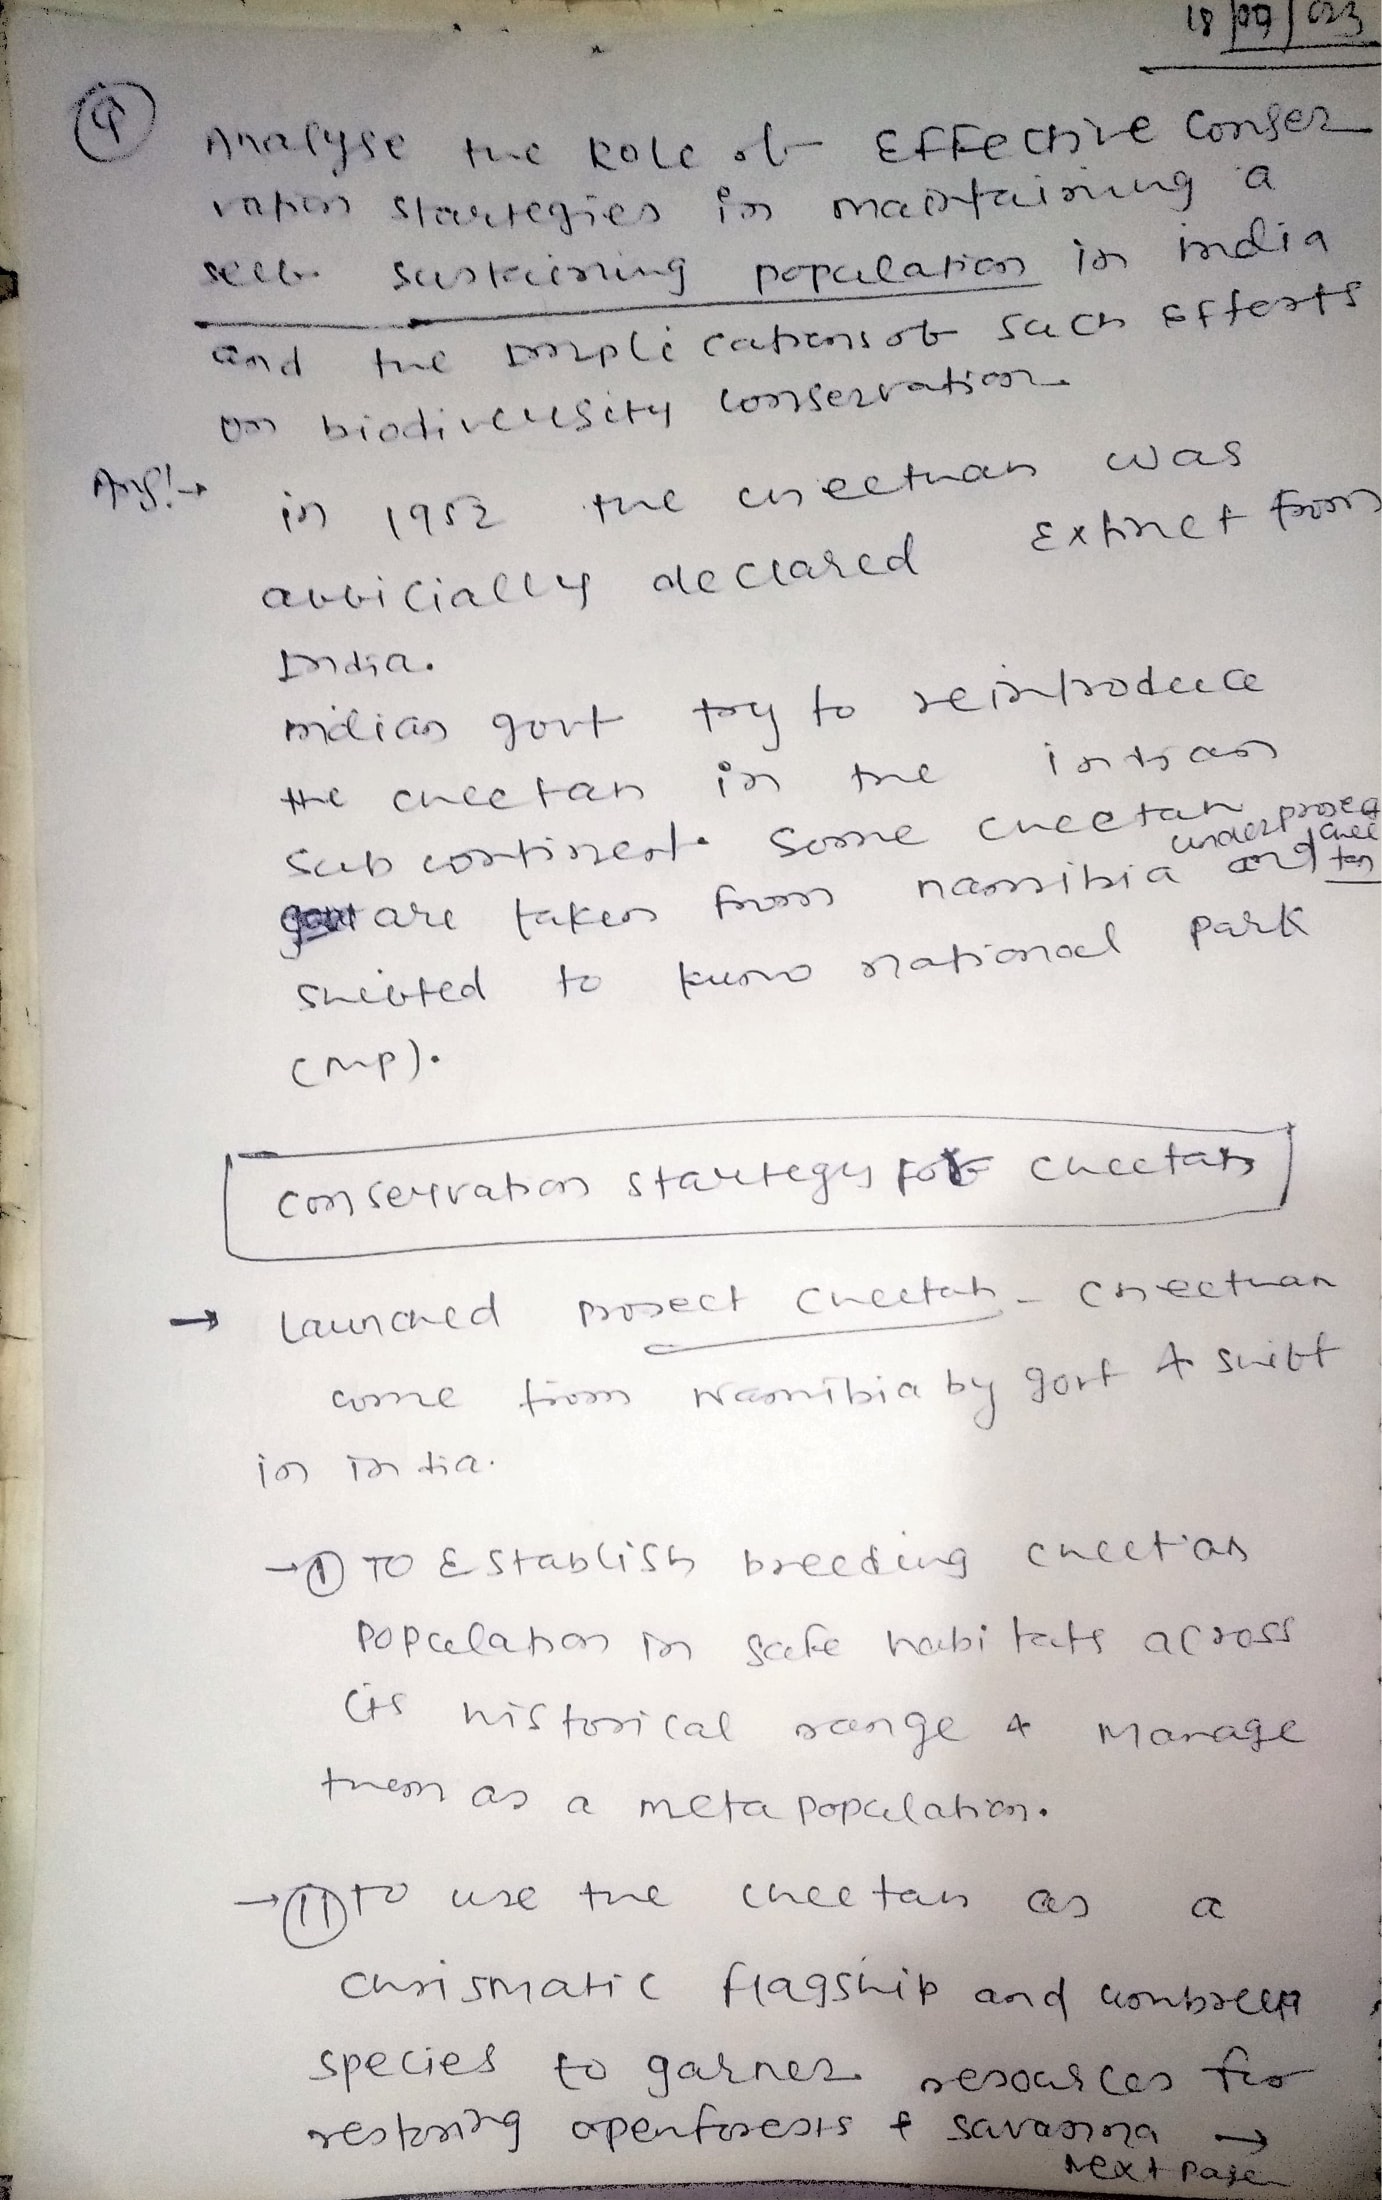 18/09/023
Q Analyse the Role of Effective Conser
vation startegies in maintaining a
self sustaining population in india
and the implications of such Efforts
on biodiversity conservation.
Ans:→ in 1952 the cheethah was
officially declared Extinct from
India.
indian govt try to reintroduce
the cheetah in the indian
sub continent. Some cheetah
under project chee
tah
are taken from namibia and
shifted to kuno national park
(MP).
conservation startegy for cheetah
→ Launched project Cheetah - Cheethah
come from Namibia by govt & shift
in india.
→ I TO Establish breeding cheetah
population in safe habitats across
its historical range & Manage
them as a meta population.
→ II to use the cheetah as a
chrismatic flagship and umbrella
species to garner resources for
restoring open forests & savanna →
Next page